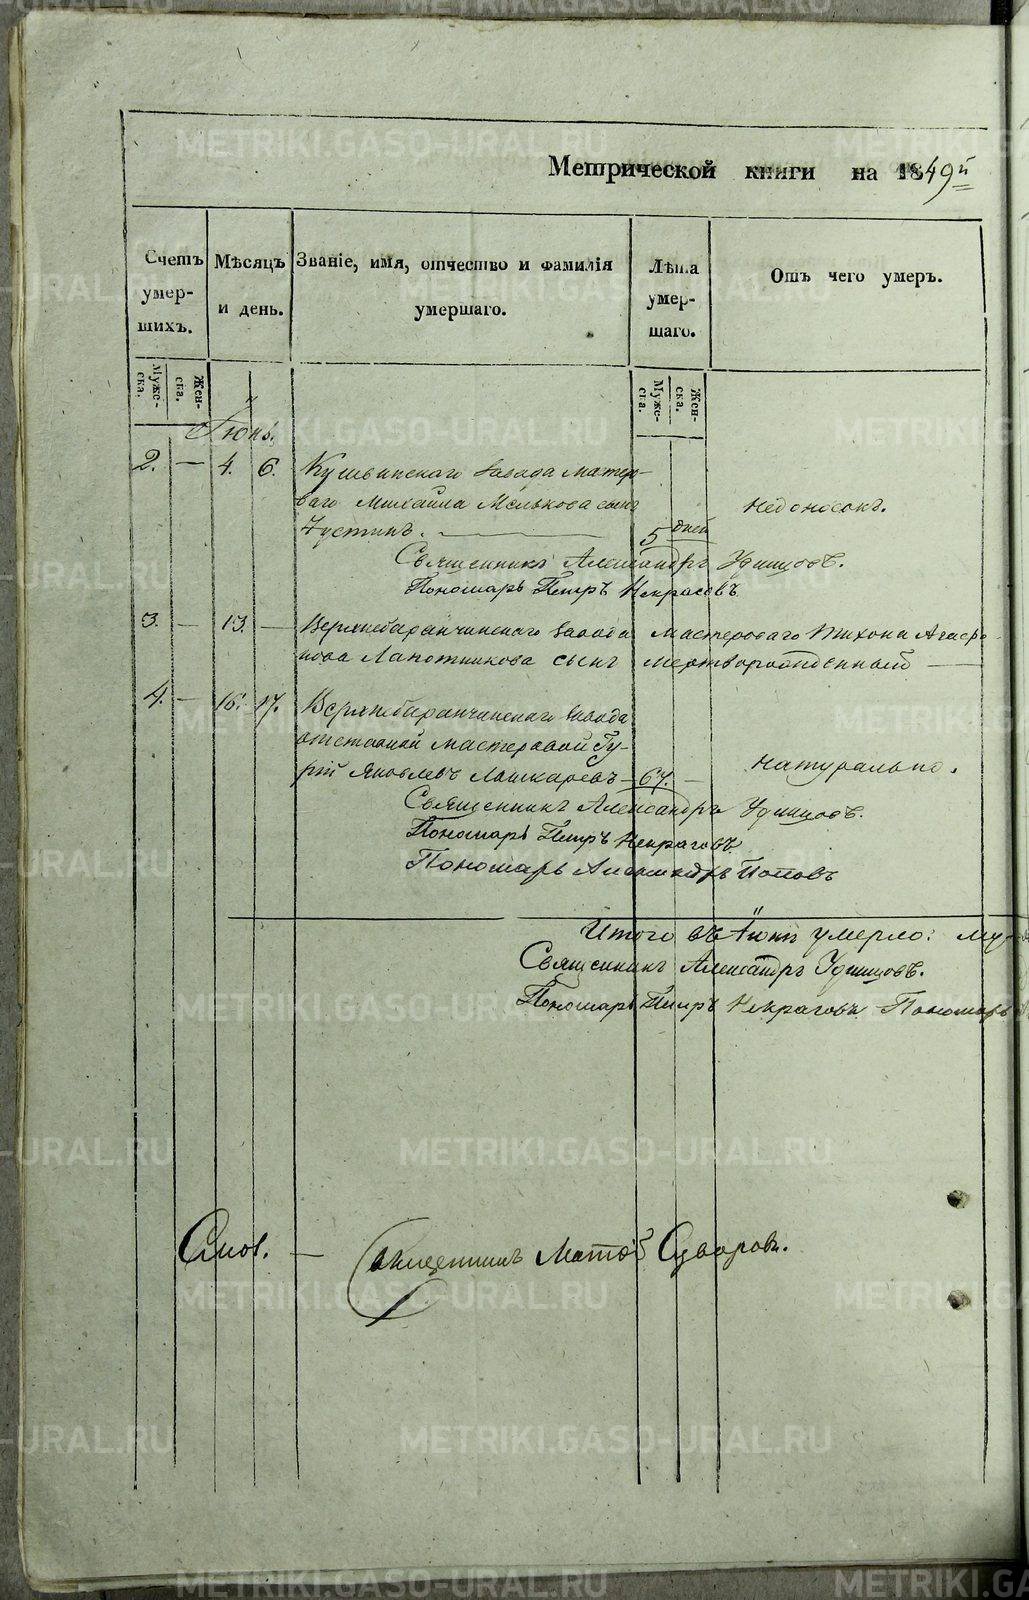 Метрической книги на 1849й
Счетъ умер-шихъ.
Мѣсяцъ и день.
Званіе, имя, отчество и фамилія умершаго.
Лѣта умер-шаго.
Отъ чего умеръ.
Муже-ска. Жен-ска.
Муже-ска. Жен-ска.
Іюнь.
2. — 4. 6. Кушвинскаго завода мастер-
ваго Михаила Мелькова сынъ недоносокъ.
Іустинъ. — 5 дней
Священникъ Александръ Удинцовъ.
Пономарь Петръ Некрасовъ
3. — 13. — Верхнебаранчинскаго завода мастероваго Тихона Агафо-
нова Лапотникова сынъ мертворожденный —
4. — 16. 17. Верхнебаранчинскаго завода
отставной мастеровой Гу-
рій Яковлевъ Лашкаревъ — 67. — натурально.
Священникъ Александръ Удинцовъ.
Пономарь Петръ Некрасовъ
Пономарь Александръ Поповъ
Итого въ Іюнѣ умерло: му-
Священникъ Александръ Удинцовъ.
Пономарь Петръ Некрасовъ Пономарь
Священникъ
METRIKI.GASO-URAL.RU